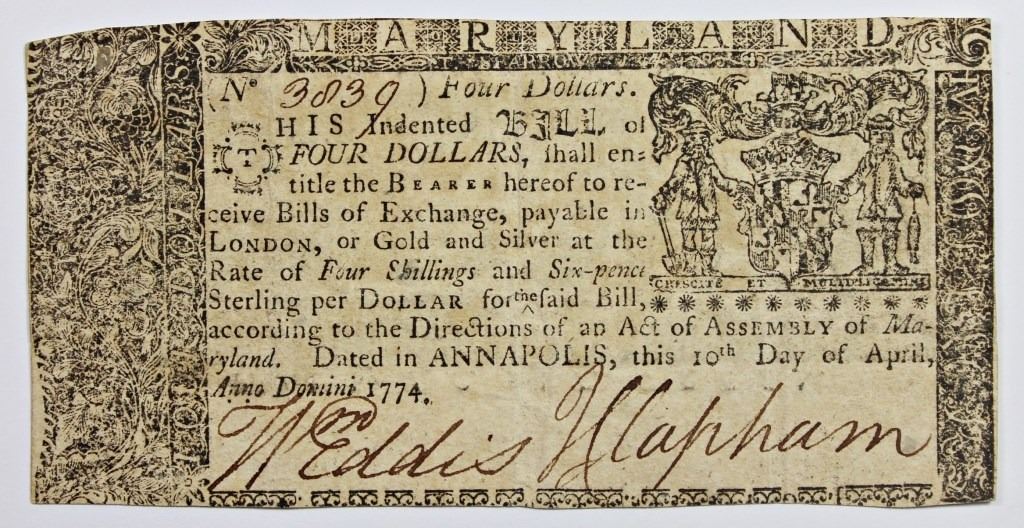 MARYLAND
T. SPARROW
(No 3839) Four Dollars.
THIS Indented BILL of
FOUR DOLLARS, ſhall en-
title the BEARER hereof to re-
ceive Bills of Exchange, payable in
LONDON, or Gold and Silver at the
Rate of Four Shillings and Six-pence
Sterling per DOLLAR for the ſaid Bill,
according to the Directions of an Act of ASSEMBLY of Ma-
ryland. Dated in ANNAPOLIS, this 10th Day of April,
Anno Domini 1774.
CRESCITE ET MULTIPLICAMINI
Wm Eddis J Clapham
FOUR DOLLARS